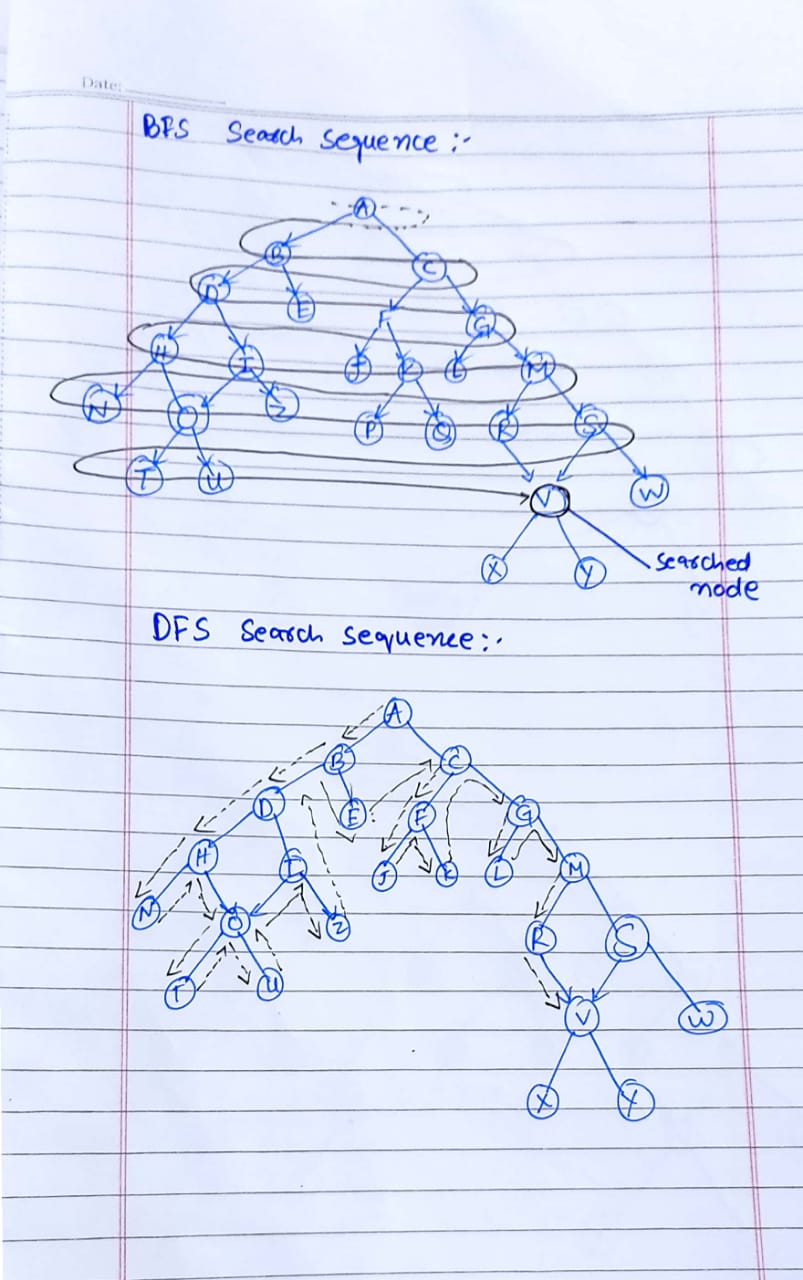 Date:
BFS Search Sequence :-
A
B
C
D
E
F
G
H
I
J
K
L
M
N
O
Z
P
Q
R
S
T
U
V
W
X
Y
Searched
node
DFS Search sequence :-
A
B
C
D
E
F
G
H
I
J
K
L
M
N
O
Z
R
S
T
U
V
W
X
Y